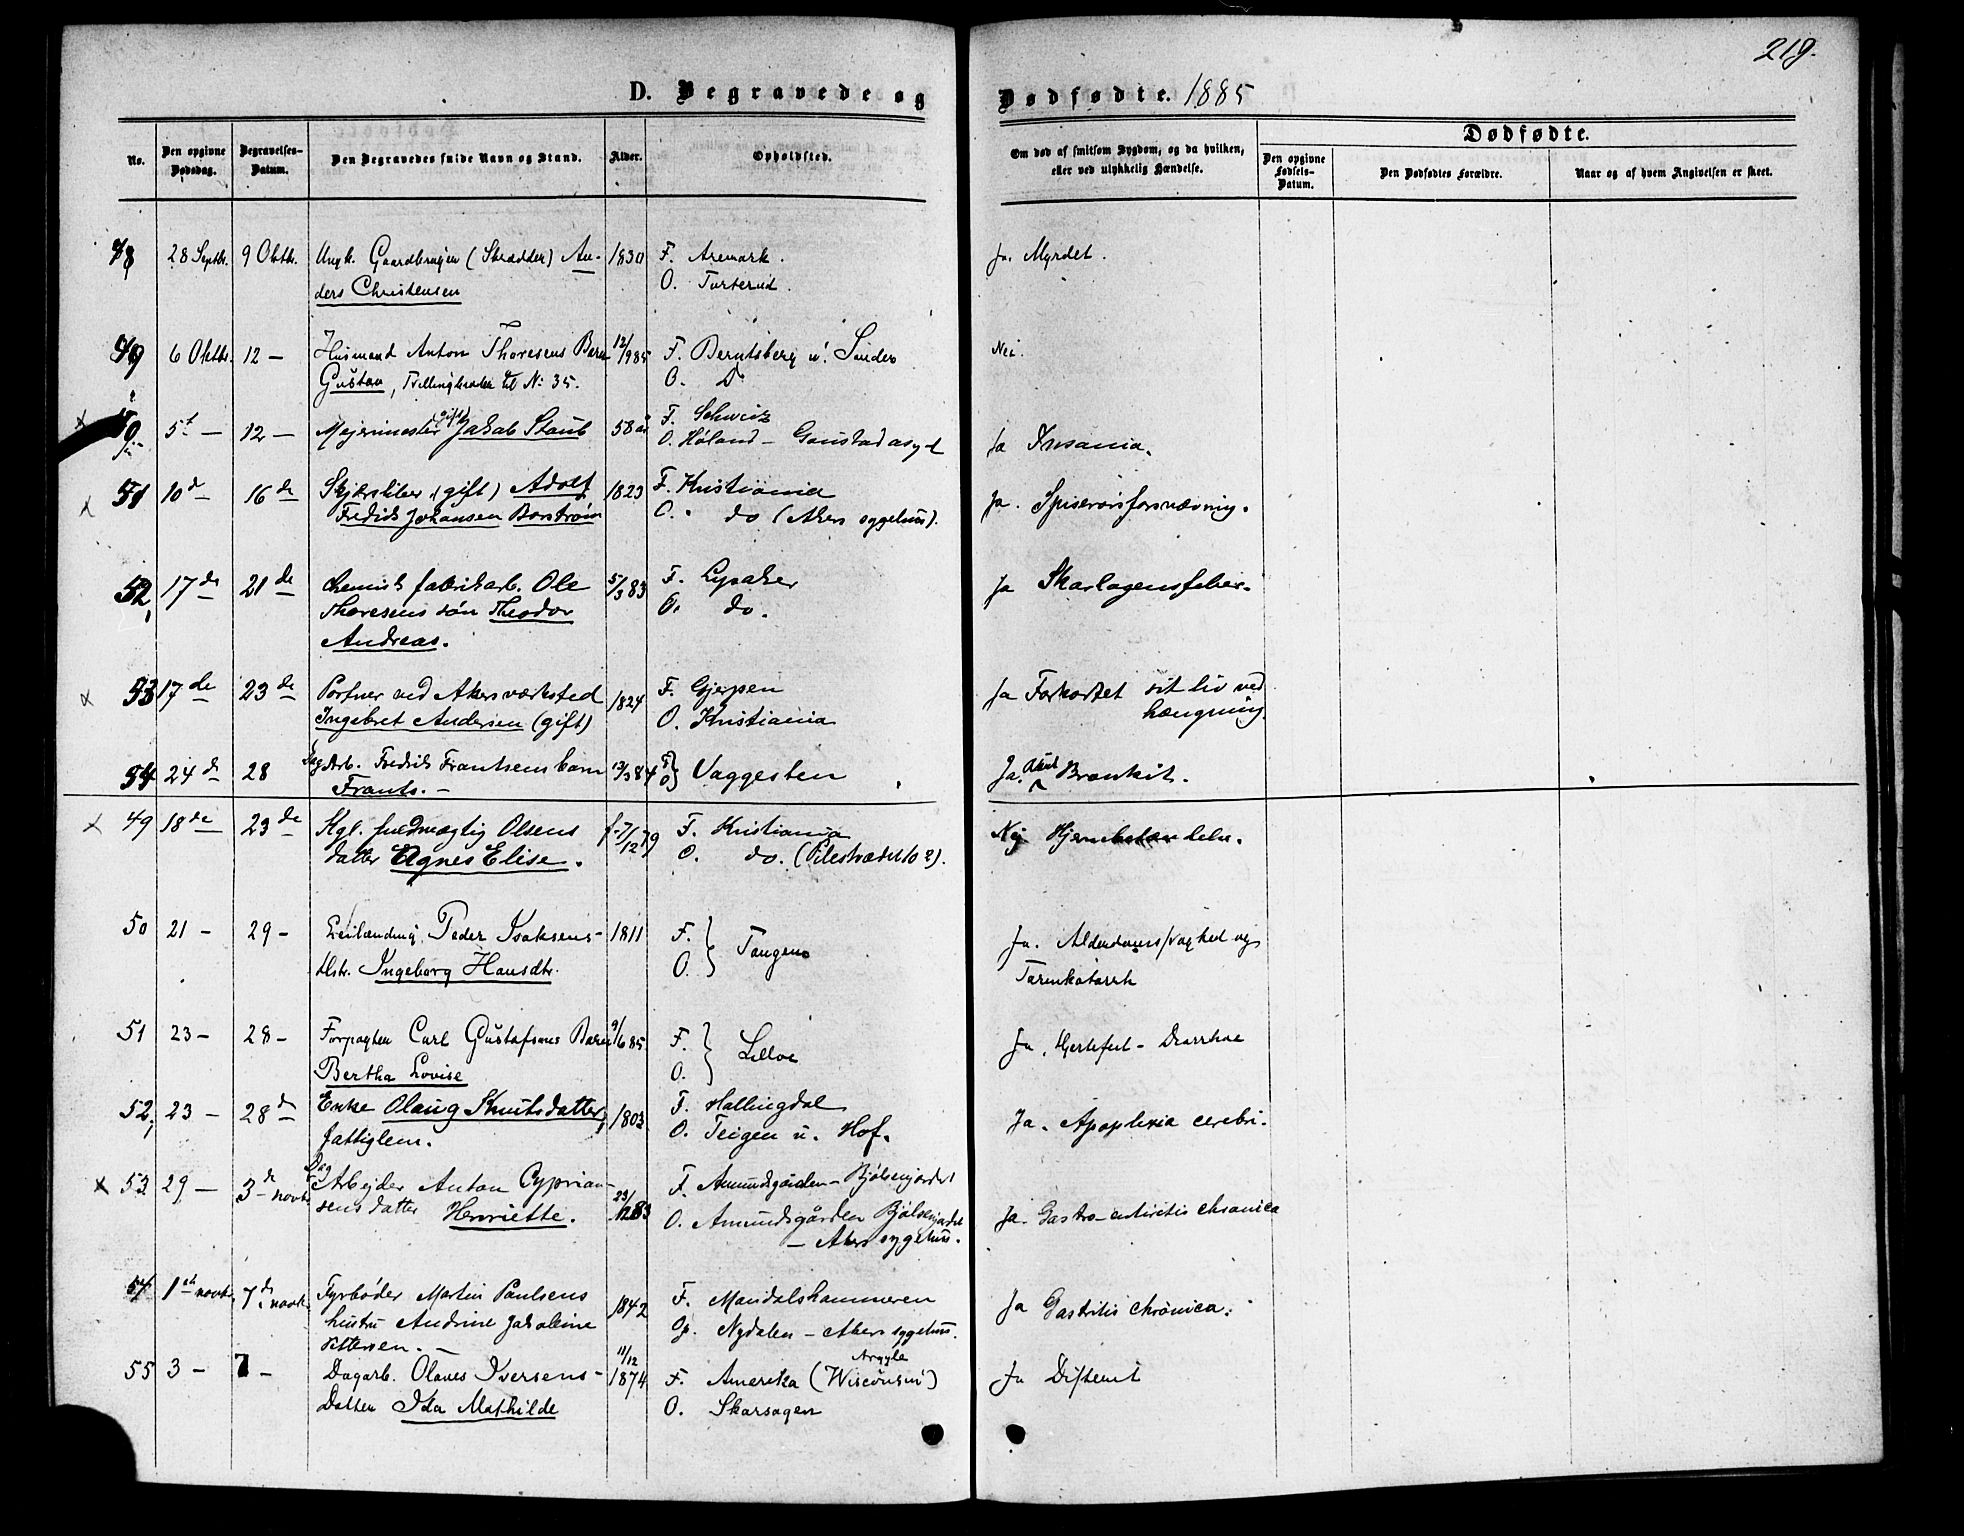 219.
D. Begravede og Dødfødte. 1885
No. Den opgivne Dødsdag. Begravelses-Datum. Den Begravedes fulde Navn og Stand. Alder. Opholdsted. Om død af smitsom Sygdom, og da hvilken, eller ved ulykkelig Hændelse. Dødfødte.
Den opgivne Fødsels-Datum. Den Dødfødtes Forældre. Naar og af hvem Angivelsen er skeet.
48 28 Septbr. 9 Oktbr. Ungk. Gaardbruger (Skrædder) An- 1830 F. Aremark. Ja. Myrdet.
ders Christensen O. Torterud.
49 6 Oktbr. 12 — Husmand Anton Thoresens Barn 12/9 85 F. Berntsberg u. Sinder Nei.
Gustav, Tvillingbroder til N: 35. O. D
x 50 5t — 12 — Mejerimester gift Jakob Staub 58 år F. Schweiz
O. Høland — Gaustad asyl Ja Insania.
x 51 10de 16de Skjærsliber (gift) Adolf 1823 F. Kristiania Ja. Spiserørsforsnævring.
Fredrik Johansen Borstrøm O. do (Akers sygehus).
52, 17de 21de Chemisk fabrikarb. Ole 5/3 83 F. Lysaker Ja Skarlagensfeber.
Thoresens søn Theodor O. do.
Andreas.
x 53 17de 23de Portner ved Akersværksted 1824 F. Gjerpen Ja Forkortet sit liv ved
Ingebret Andersen (gift) O. Kristiania hængning.
54 24d 28 Dag Arb. Fredrik Frantsens barn 13/3 84 F O} Vaggesten Ja. Akut Bronkit.
Frants. —
x 49 18de 23de Kgl. fuldmægtig Olsens f. 7/12 79 F. Kristiania Nej Hjernebetændelse.
datter Agnes Elise. O. do. (Pilestrædet 102).
50 21 — 29 — Leilænding Peder Isaksens 1811 F. O.} Tangen Ja. Alderdomssvaghed og
Hstr. Ingeborg Hansdtr. Tarmkatarrh
51 23 — 28 — Forpagter Carl Gustafsens Barn 9/6 85 F. O.} Lilloe Ja. Hjertefeil — Diarrhoe
Bertha Lovise
52, 23 — 28d Enke Olaug Knutsdatter, 1803 F. Hallingdal Ja. Apoplexia cerebri.
fattiglem. O. Teigen u. Hof.
x 53 29 — 3de novbr. Dag Arbejder Anton Cyprian- 23/12 83 F. Amundsgården — Bjølsenjordet
sens datter Henriette. O. Amundsgården Bjølsenjordet Ja. Gastro-enteritis chronica
— Akers sygehus.
54 1st novbr. 7de novbr. Fyrbøder Martin Paulsens 1842 F. Mandalshammeren Ja Gastritis chronica.
hustru Andrine Jakobine Op. Nydalen — Akers sygehus.
Pettersen. —
55 3 — 7 — Dagarb. Olaves Iversens 11/12 1874 F. Amerika (Argyle Wisconsin) Ja Difterit
Datter Ida Mathilde O. Skarsagen